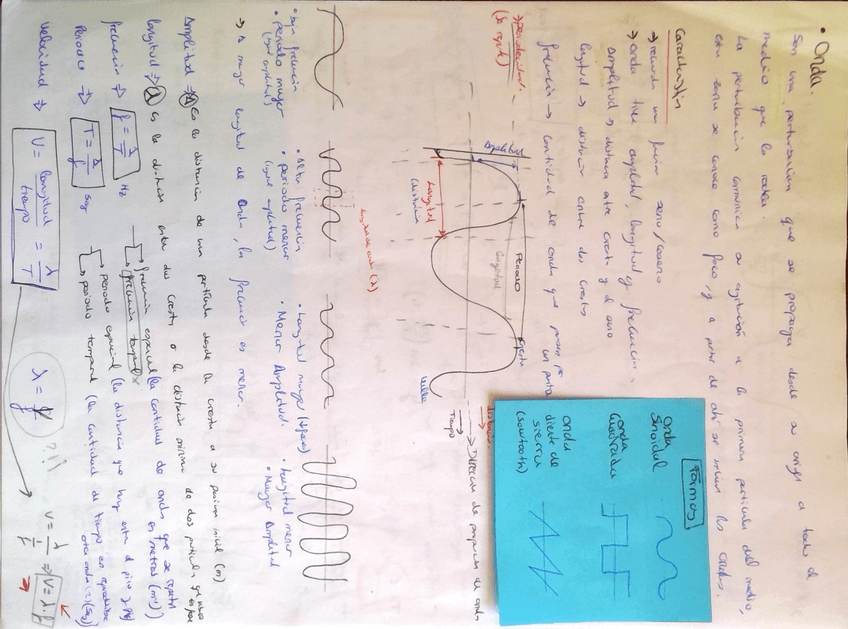 • Onda.
Son una perturbación que se propaga desde su origen a todo el
medio que la rodea.
La perturbación comunica su agitación a la primera partícula del medio,
esta se conoce como foco, y a partir de ahí se las ondas.
Características
→ una función seno/coseno
→ onda tiene amplitud, longitud y frecuencia
amplitud → distancia entre cresta y el
longitud → distancia entre dos crestas
frecuencia → cantidad de onda que pasan por un punto
→ periodicidad
(se repite)
Formas
Onda
Sinoidal
Onda
Cuadrada
onda
diente de
sierra
(sawtooth)
Amplitud
Longitud
(distancia)
Periodo
Longitud
Cresta
Valle
distancia
Tiempo
→ Dirección de propagación de onda
longitud de onda (λ)
• baja frecuencia
• periodo mayor
(igual amplitud)
• Alta frecuencia
• periodo menor
(igual amplitud)
• Longitud mayor
• Menor Amplitud.
• longitud menor
• Mayor Amplitud
→ A mayor longitud de onda, la frecuencia es menor.
Amplitud → A Es la distancia de una partícula desde la cresta a su posición inicial (m)
longitud → λ Es la distancia entre dos crestas o la distancia mínima de dos partículas
frecuencia → f = 1/T Hz
frecuencia espacial (la cantidad de onda que se repite en metros (m⁻¹))
frecuencia temporal
Periodo → T = 1/f seg
periodo espacial (la distancia que hay entre el pico
periodo temporal (la cantidad de tiempo en
otra onda (seg))
Velocidad → V = longitud/tiempo = λ/T
λ = ?!!
V = λ/(1/f) ⇒ V = λ·f